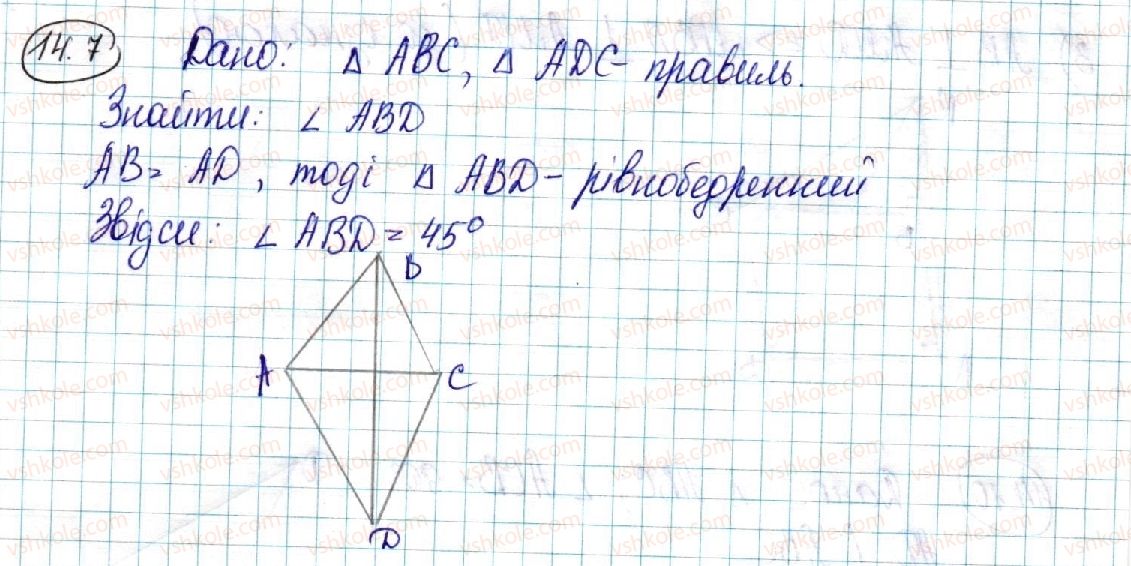 14.7 Дано: △ ABC, △ ADC - правиль.
Знайти: ∠ ABD
AB = AD, тоді △ ABD - рівнобедренний
Звідси: ∠ ABD = 45°
B
A
C
D
vshkole.com